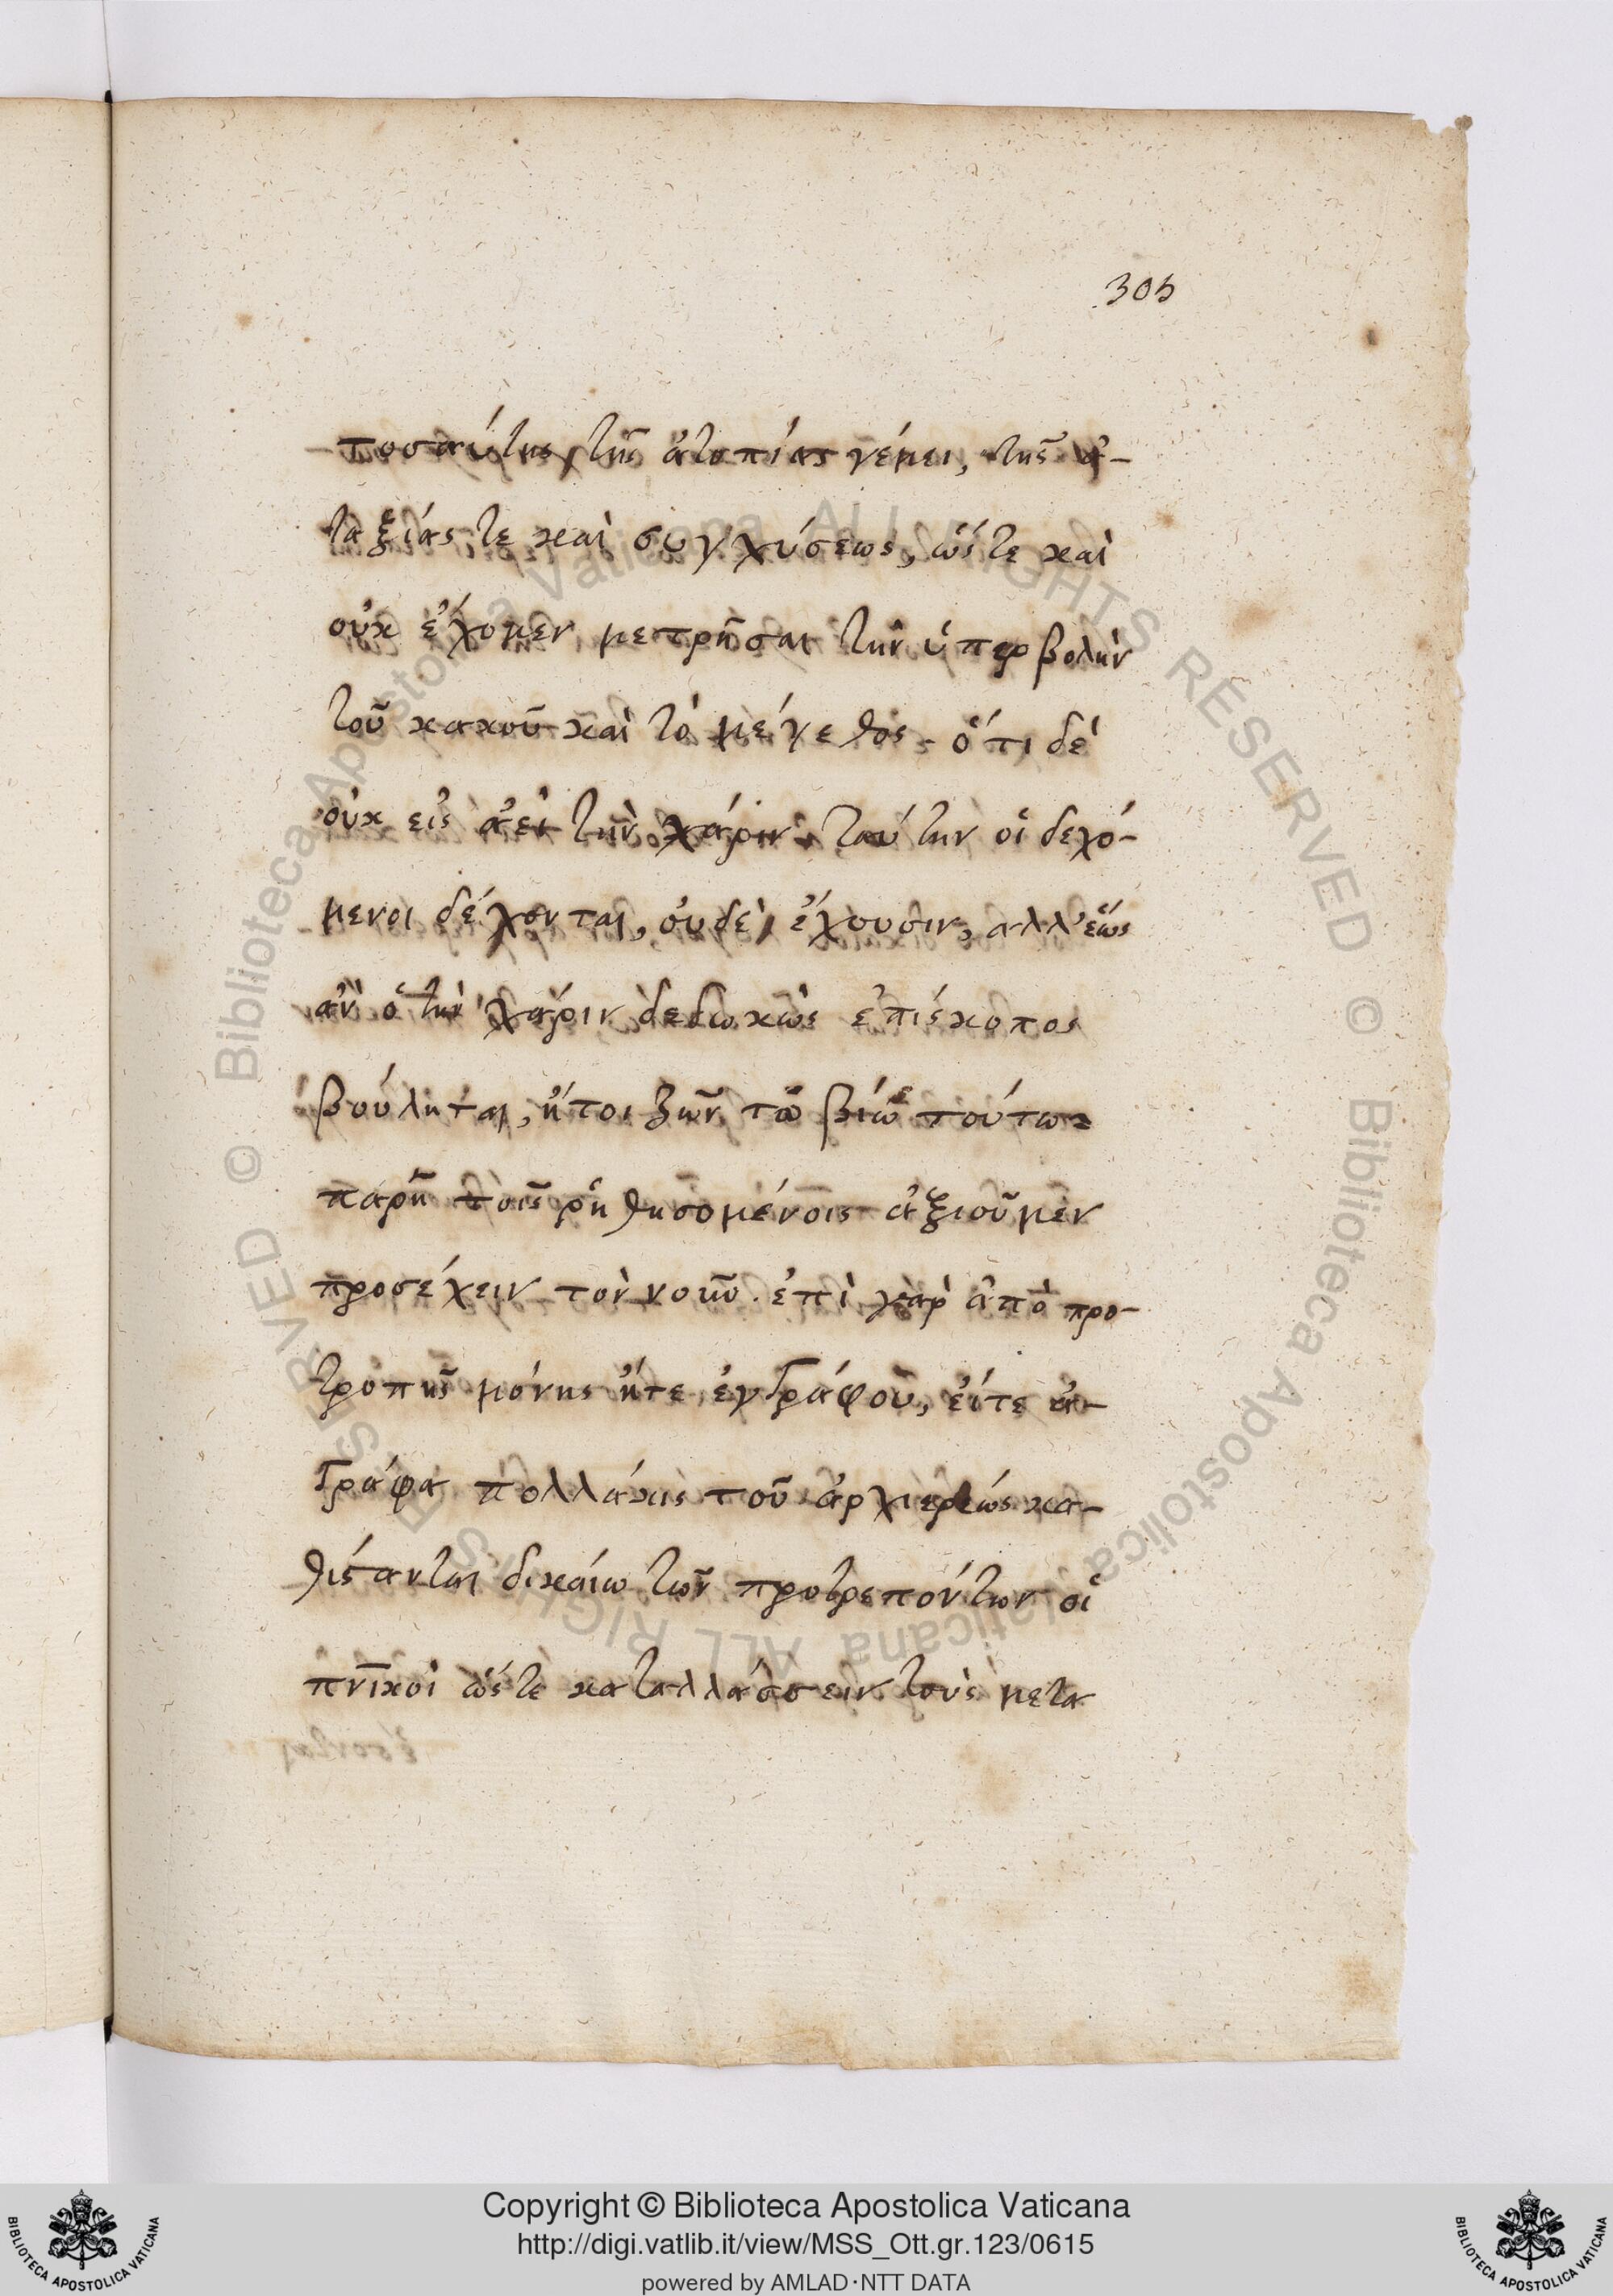 305
τοσαύτης τῆς ἀτοπίας γέμει, τῆς ἀ-
ταξίας τε καὶ συγχύσεως, ὥστε καὶ
οὐκ ἔχομεν μετρῆσαι τὴν ὑπερβολὴν
τοῦ κακοῦ καὶ τὸ μέγεθος. ὅτι δὲ
οὐκ εἰς ἀεὶ τὴν χάριν ταύτην οἱ δεχό-
μενοι δέχονται, οὐδὲ ἔχουσιν, αλλ' ἕως
ἂν ὁ τὴν χάριν δεδωκὼς ἐπίσκοπος
βούληται, ἤτοι ζῶν τῶ βίω τούτω
παρῆ τοῖς ῥηθησομένοις ἀξιοῦμεν
προσέχειν τὸν νοῦν. ἐπὶ γὰρ ἀπὸ προ-
τροπῆς μόνης ἤτε ἐγγράφου, εἴτε ἀ-
γράφα πολλάκις τοῦ ἀρχιερέως κα-
θίστανται δικαίω τῶν προτρεπόντων οἱ
πνικοὶ ὥστε καταλλάσσειν τοὺς μετα
Copyright © Biblioteca Apostolica Vaticana
http://digi.vatlib.it/view/MSS_Ott.gr.123/0615
powered by AMLAD·NTT DATA
BIBLIOTECA APOSTOLICA VATICANA
BIBLIOTECA APOSTOLICA VATICANA
© Biblioteca Apostolica Vaticana ALL RIGHTS RESERVED © Biblioteca Apostolica Vaticana ALL RIGHTS RESERVED